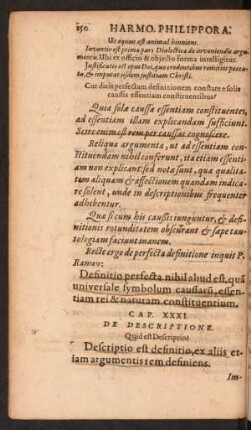 150 HARMO. PHILIPPORA:
Ut equus est animal hinniens.
Inventio est prima pars Dialectica de inveniendis argu-
mentis. Ubi ex officio & objecto forma intelligitur.
Justificatio est opus Dei, quo credentibus remittit pecca-
ta, & imputat justitiam Christi.
Cur dicis perfectam definitionem constare è solis
caussis essentiam constituentibus?
Quia solæ caussæ essentiam constituentes,
ad essentiam illam explicandam sufficiunt.
Scire enim est rem per caussas cognoscere.
Reliqua argumenta, ut ad essentiam con-
stituendam nihil conferunt, ita etiam essenti-
am non explicant: sed nota sunt, qua qualita-
tum aliquam & affectionem quandam indica-
re solent, unde in descriptionibus frequenter
adhibentur.
Qua si cum his caussis iunguntur, & defi-
nitionis rotunditatem obscurant & sæpe tau-
tologiam faciunt inanem.
Recte ergo de perfecta definitione inquit P.
Ramus:
Definitio perfecta nihil aliud est, quã
universale symbolum caussarũ, essen-
tiam rei & naturam constituentium.
CAP. XXXI.
DE DESCRIPTIONE.
Quid est Descriptio?
Descriptio est definitio, ex aliis et-
iam argumentis rem definiens.
Im-